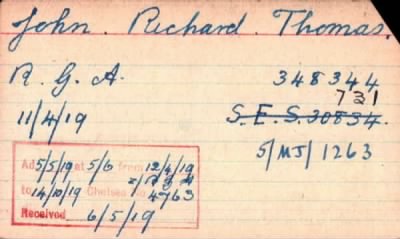 John. Richard. Thomas.
R. G. A. 348344
731
11/4/19 S.E.S. 30834.
5/MJ/1263
Ad 5/5/19 at 5/6 from 12/4/19
to 14/10/19 Chelsea No 4763
Received 6/5/19